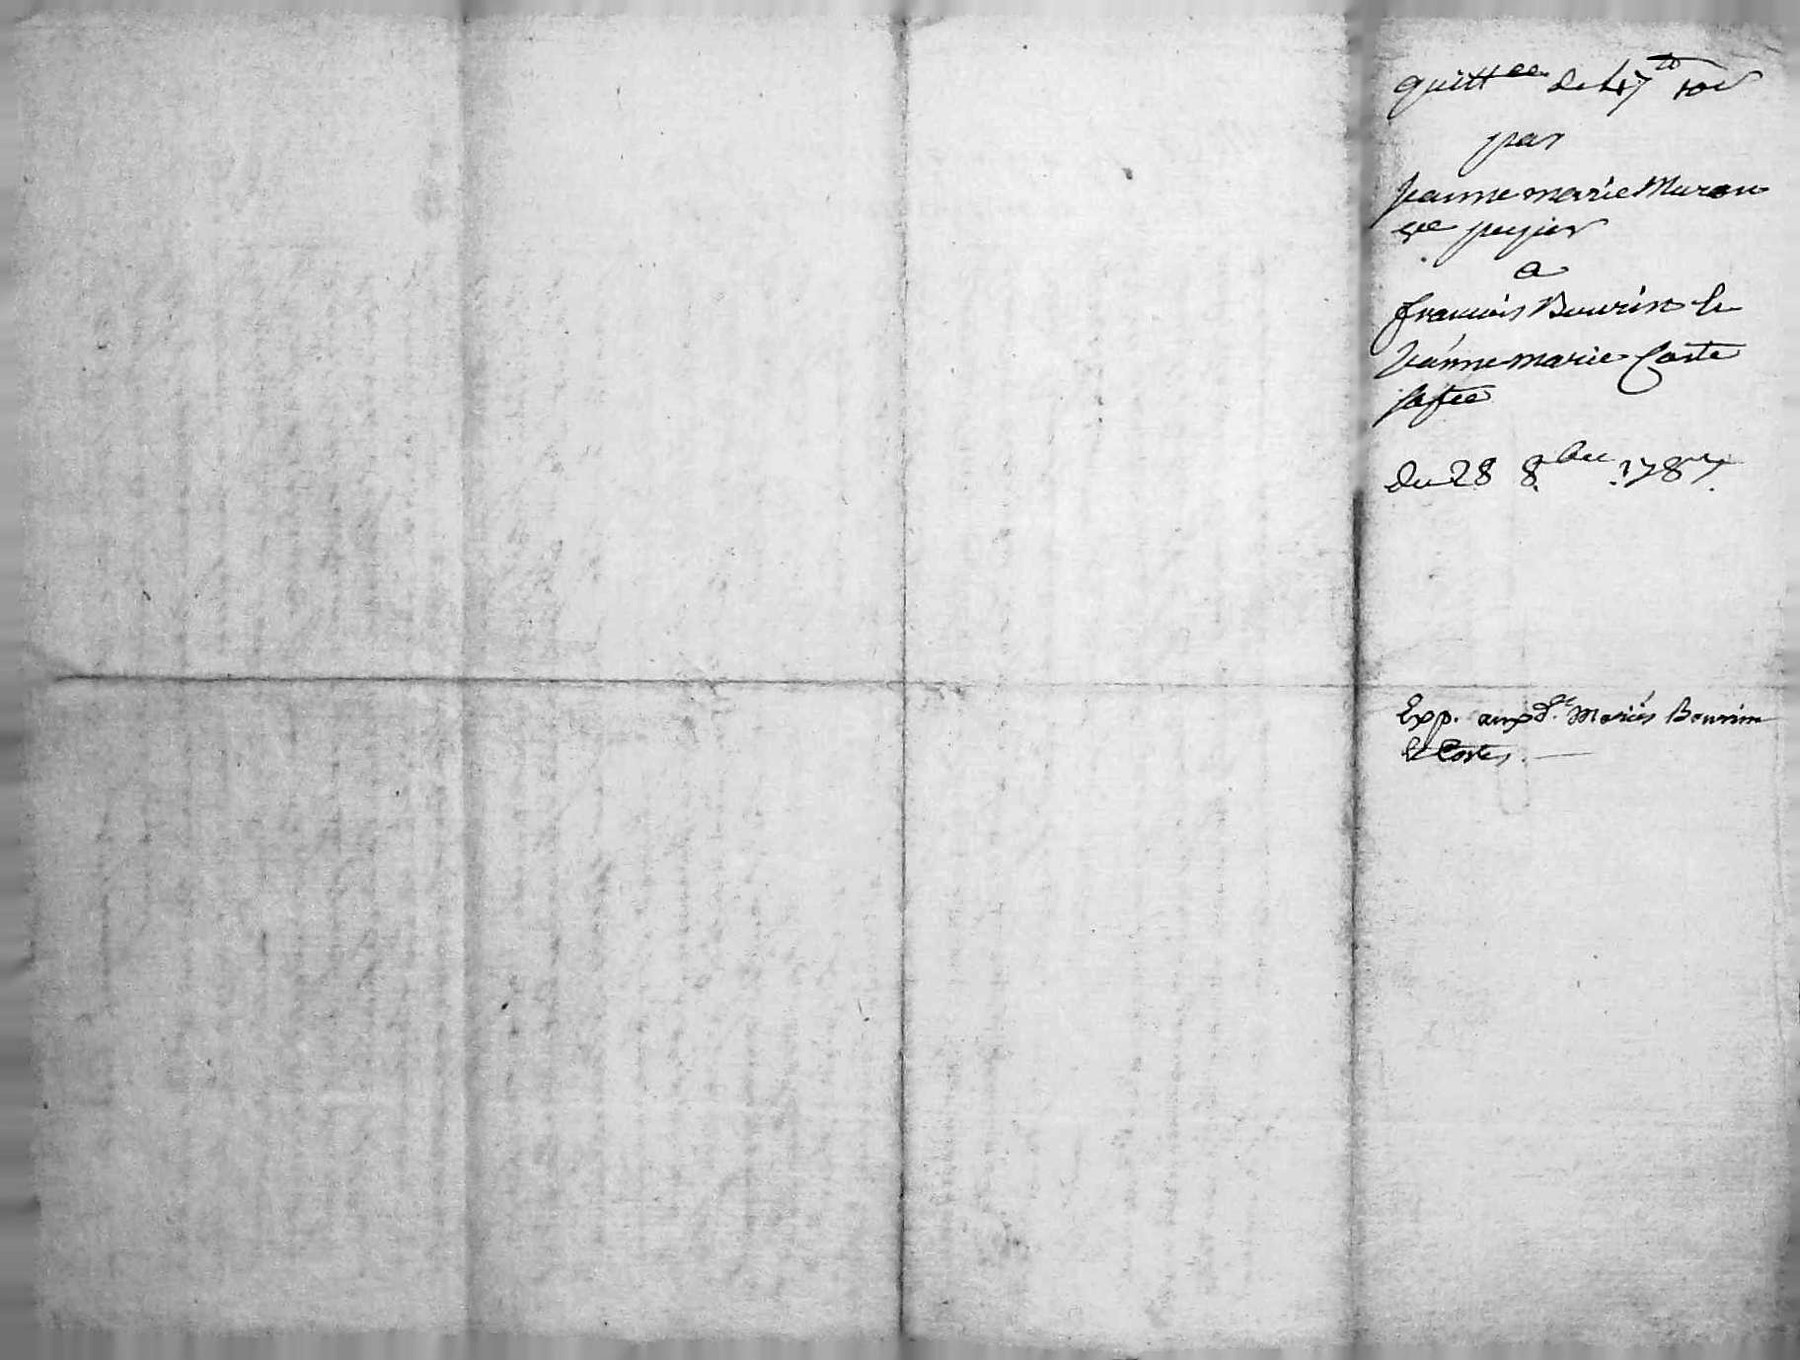 quittce de 47tt 10s
par
Jeanne marie Muron
ve pupier
a
francois Bourin &
Jeanne marie Coste
sa fee
du 28 8bre 1787.
Exp. aux d.ts Mariés Bourrin
& Costes.